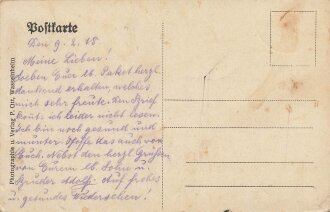 Postkarte
Den 9. 2. 18.
Meine Lieben!
Soeben Euer lb. Paket herzl.
dankend erhalten, welches
mich sehr freute. Den Brief
konnt. ich leider nicht lesen.
Ich bin noch gesund und
munter hoffe das auch von
Euch. Nebst den herzl Grüßen
von Eurem lb. Sohn u.
Bruder Adolf. Auf frohes
u. gesundes Wiedersehen!
Photographie u. Verlag P. Ott, Wasselnheim